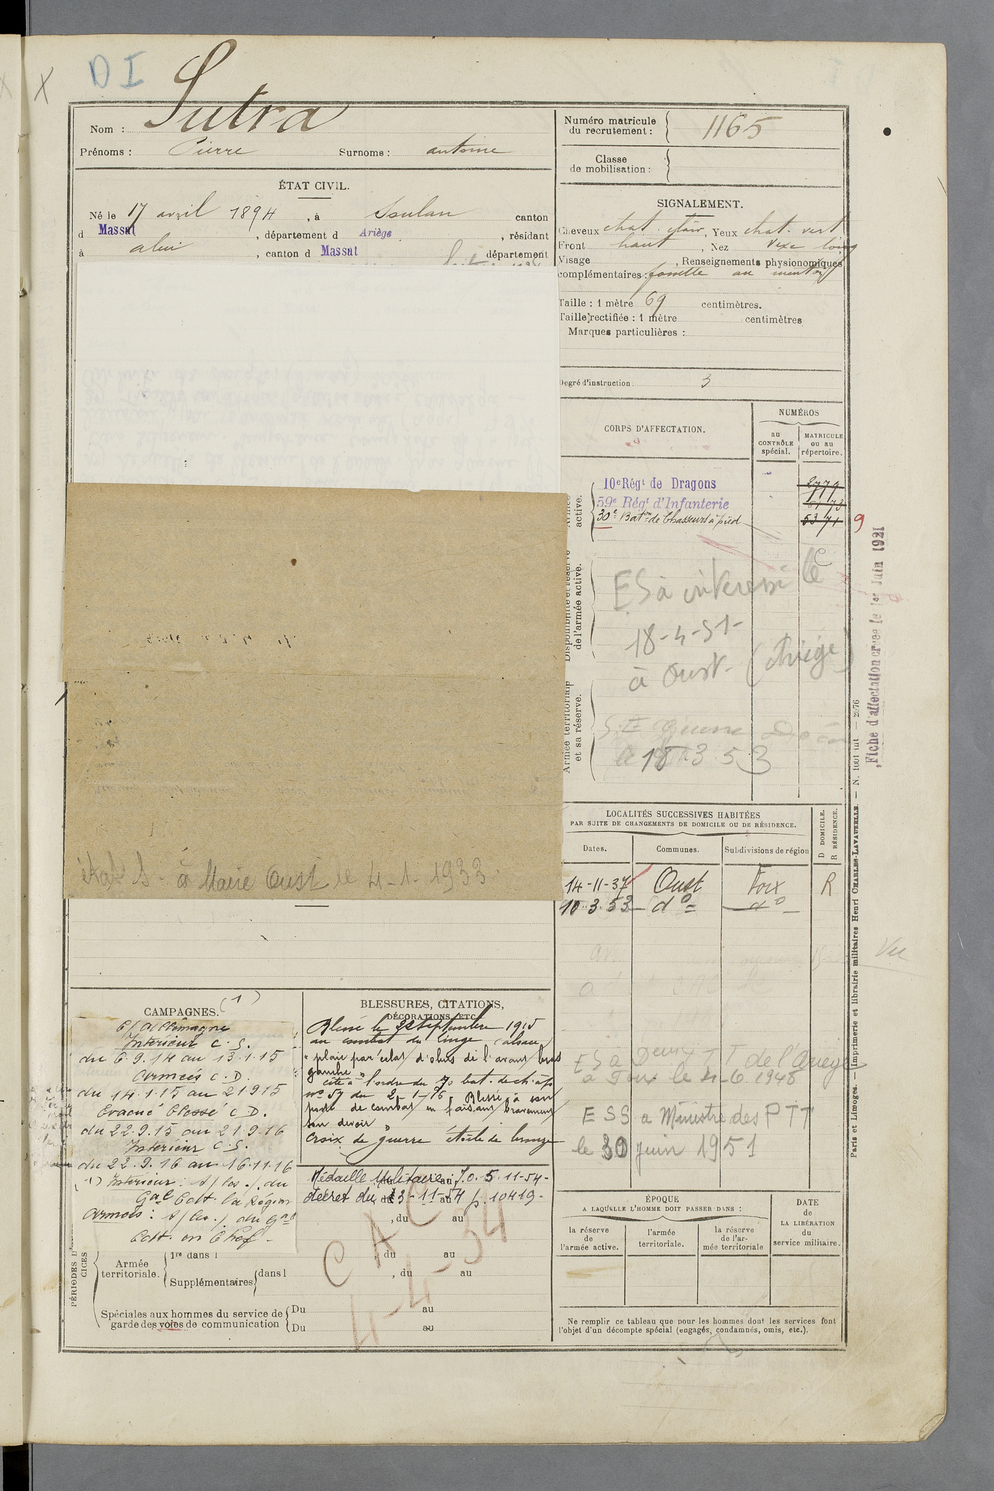 DI
Nom : Sutra
Prénoms : Pierre Surnoms : antoine
ÉTAT CIVIL.
Né le 17 avril 1894, à Soulan canton
d Massat, département d Ariège, résidant
à alui, canton d Massat département
Numéro matricule
du recrutement : 1165
Classe
de mobilisation :
SIGNALEMENT.
Cheveux chat. clair, Yeux chat. vert
Front haut, Nez Vexe long
Visage , Renseignements physionomiques
complémentaires : fossette au menton
Taille : 1 mètre 69 centimètres.
Taille rectifiée : 1 mètre centimètres
Marques particulières :
Degré d'instruction : 3
CORPS D'AFFECTATION.
NUMÉROS
au
CONTRÔLE
spécial.
MATRICULE
ou au
répertoire.
active.
10e Régt de Dragons
59e Régt d'Infanterie
30e Baton de Chasseurs à pied 5371
9
Disponibilité et réserve
de l'armée active.
ES à
18-4-51-
à Oust - (Ariège)
Armée territoriale
et sa réserve.
le 18.3.53
Fiche d'affectation créée le 1er Juin 1921
état S à Mairie Oust le 4-1-1933
LOCALITÉS SUCCESSIVES HABITÉES
PAR SUITE DE CHANGEMENTS DE DOMICILE OU DE RÉSIDENCE.
D DOMICILE.
R RÉSIDENCE.
Dates. Communes. Subdivisions de région
14-11-37 Oust Foix R
18-3-53 do do
Vu
ES à Deur T T de l'Ariège
à Foix le 4-6 1948
ESS à Ministre des PTT
le 30 juin 1951
CAMPAGNES. (1)
C/ Allemagne
Intérieur C.S.
du 6.9.14 au 13.1.15
Armées C.D.
du 14.1.15 au 21915
Evacué Blessé C.D.
du 22.9.15 au 21.9.16
Intérieur C.S.
du 22.9.16 au 16.11.16
(1) Intérieur : s/ les / du
Gal Cdt la Région
Armées : s/ les / du Gal
Cdt. en Chef -
BLESSURES, CITATIONS,
DÉCORATIONS, ETC.
Blessé le 22 septembre 1915
au combat du Linge (alsace)
"plaie par éclat d'obus de l'avant bras
gauche"
cité à l'ordre du 70 bat. de ch. à p.
no 59 du 2-1-16 "Blessé à son
poste de combat en faisant bravement
son devoir"
Croix de guerre étoile de bronze
Médaille Militaire J.O. 5.11-54-
décret du 3-11-54 p. 10419-
, du au
du au
, du au
CAC
4-4-34
PÉRIODES D'
CICES
Armée
territoriale.
1re dans l
Supplémentaires dans l
Spéciales aux hommes du service de
garde des voies de communication
Du au
Du au
ÉPOQUE
A LAQUELLE L'HOMME DOIT PASSER DANS :
la réserve
de
l'armée active.
l'armée
territoriale.
la réserve
de l'ar-
mée territoriale
DATE
de
LA LIBÉRATION
du
service militaire.
Ne remplir ce tableau que pour les hommes dont les services font
l'objet d'un décompte spécial (engagés, condamnés, omis, etc.).
Paris et Limoges. — Imprimerie et librairie militaires Henri CHARLES-LAVAUZELLE.